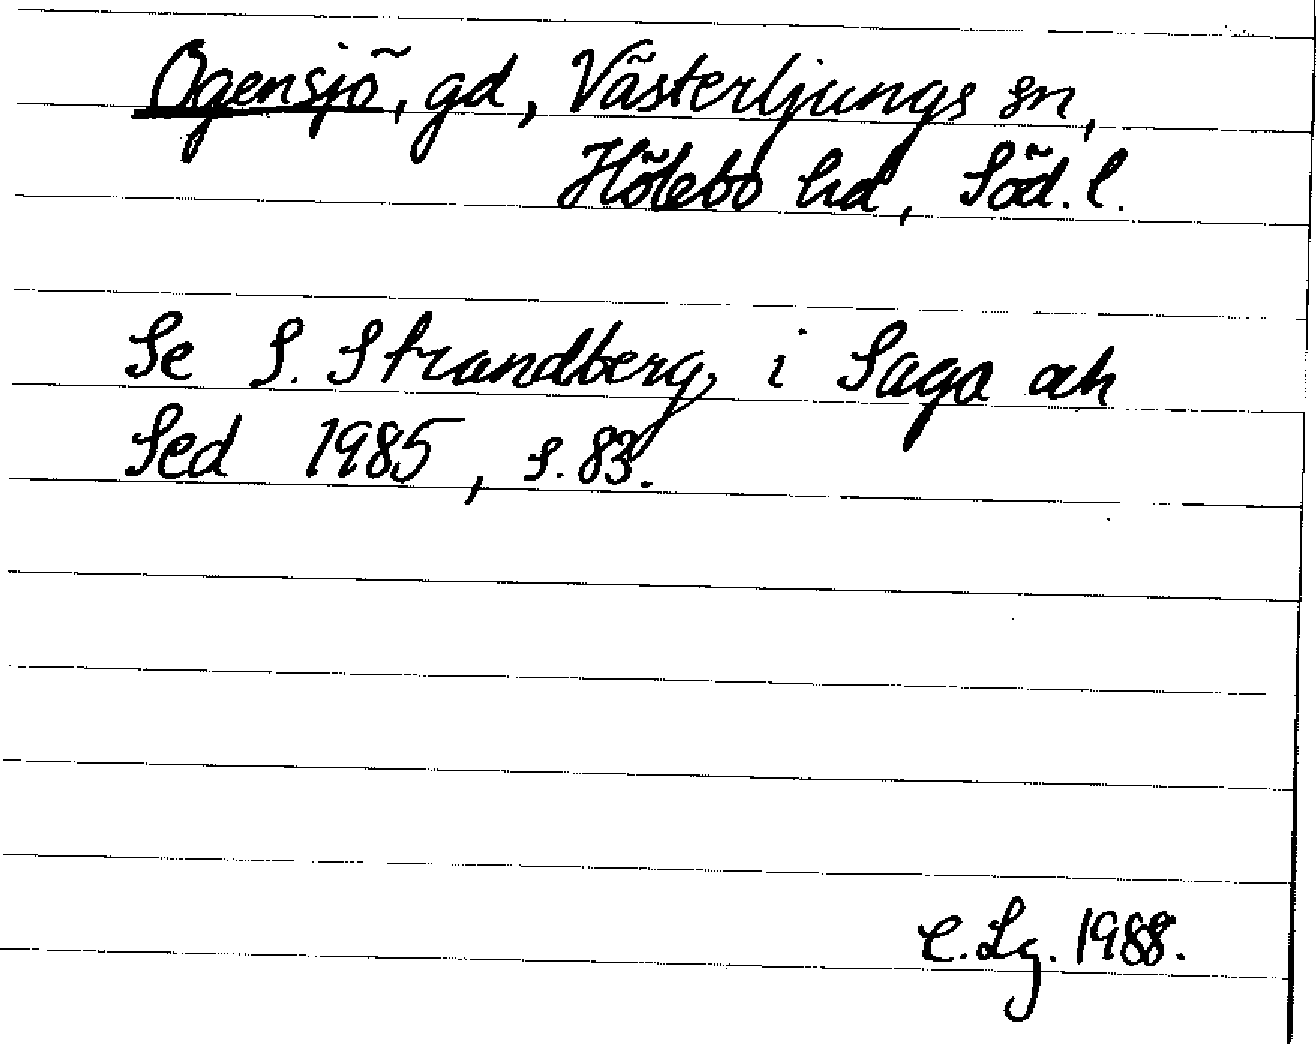 Ogensjö, gd, Västerljungs sn,
Hölebo hd, Söd. l.
Se S. Strandberg, i Saga och
Sed 1985, s. 83.
C. Lg. 1988.